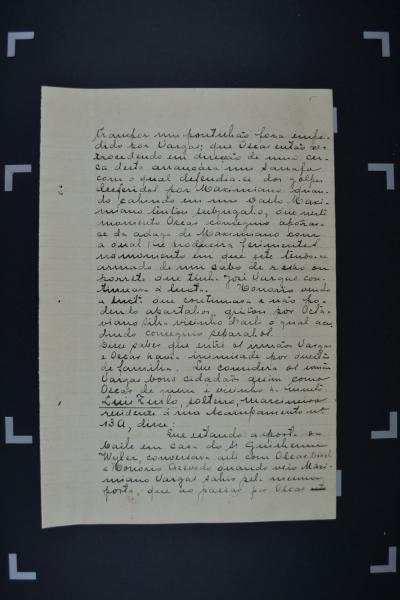 transpor um pontilhão fora impe-
dido por Vargas; que Oscar então re-
trocedendo em direção de uma cer-
ca desta arrancára um sarrafo
com o qual defendia-se dos golpes
desferidos por Maximiano quan-
do cahindo em um Maxi-
miano tentou subjugal-o, que neste
momento Oscar conseguio apossar-
se da adaga de Maximiano com
a qual lhe produzira ferimentos
no momento em que este tendo-se
armado de um cabo de relho ou
porrete que tinha José Vargas con-
tinuara a lucta. Honorio vendo
a lucta que continuava e não po-
dendo apartal-os, gritou por Octa-
viano Silva visinho d'ali o qual acu-
dindo conseguio separal-os.
Disse saber que entre os irmãos Vargas
e Oscar havia inimisade por questão
de familia. Que considera os irmãos
Vargas bons cidadãos assim como
Oscar de quem é visinho
Luiz solteiro, marcineiro
residente á rua Acampamento nº
13 A, disse:
Que estando a porta do
baile em casa do Sr Guilherme
Wyler, conversava ali com Oscar
e Honorio Azevedo quando veio Maxi-
miano Vargas sahio pela mesma
porta, que ao passar por Oscar